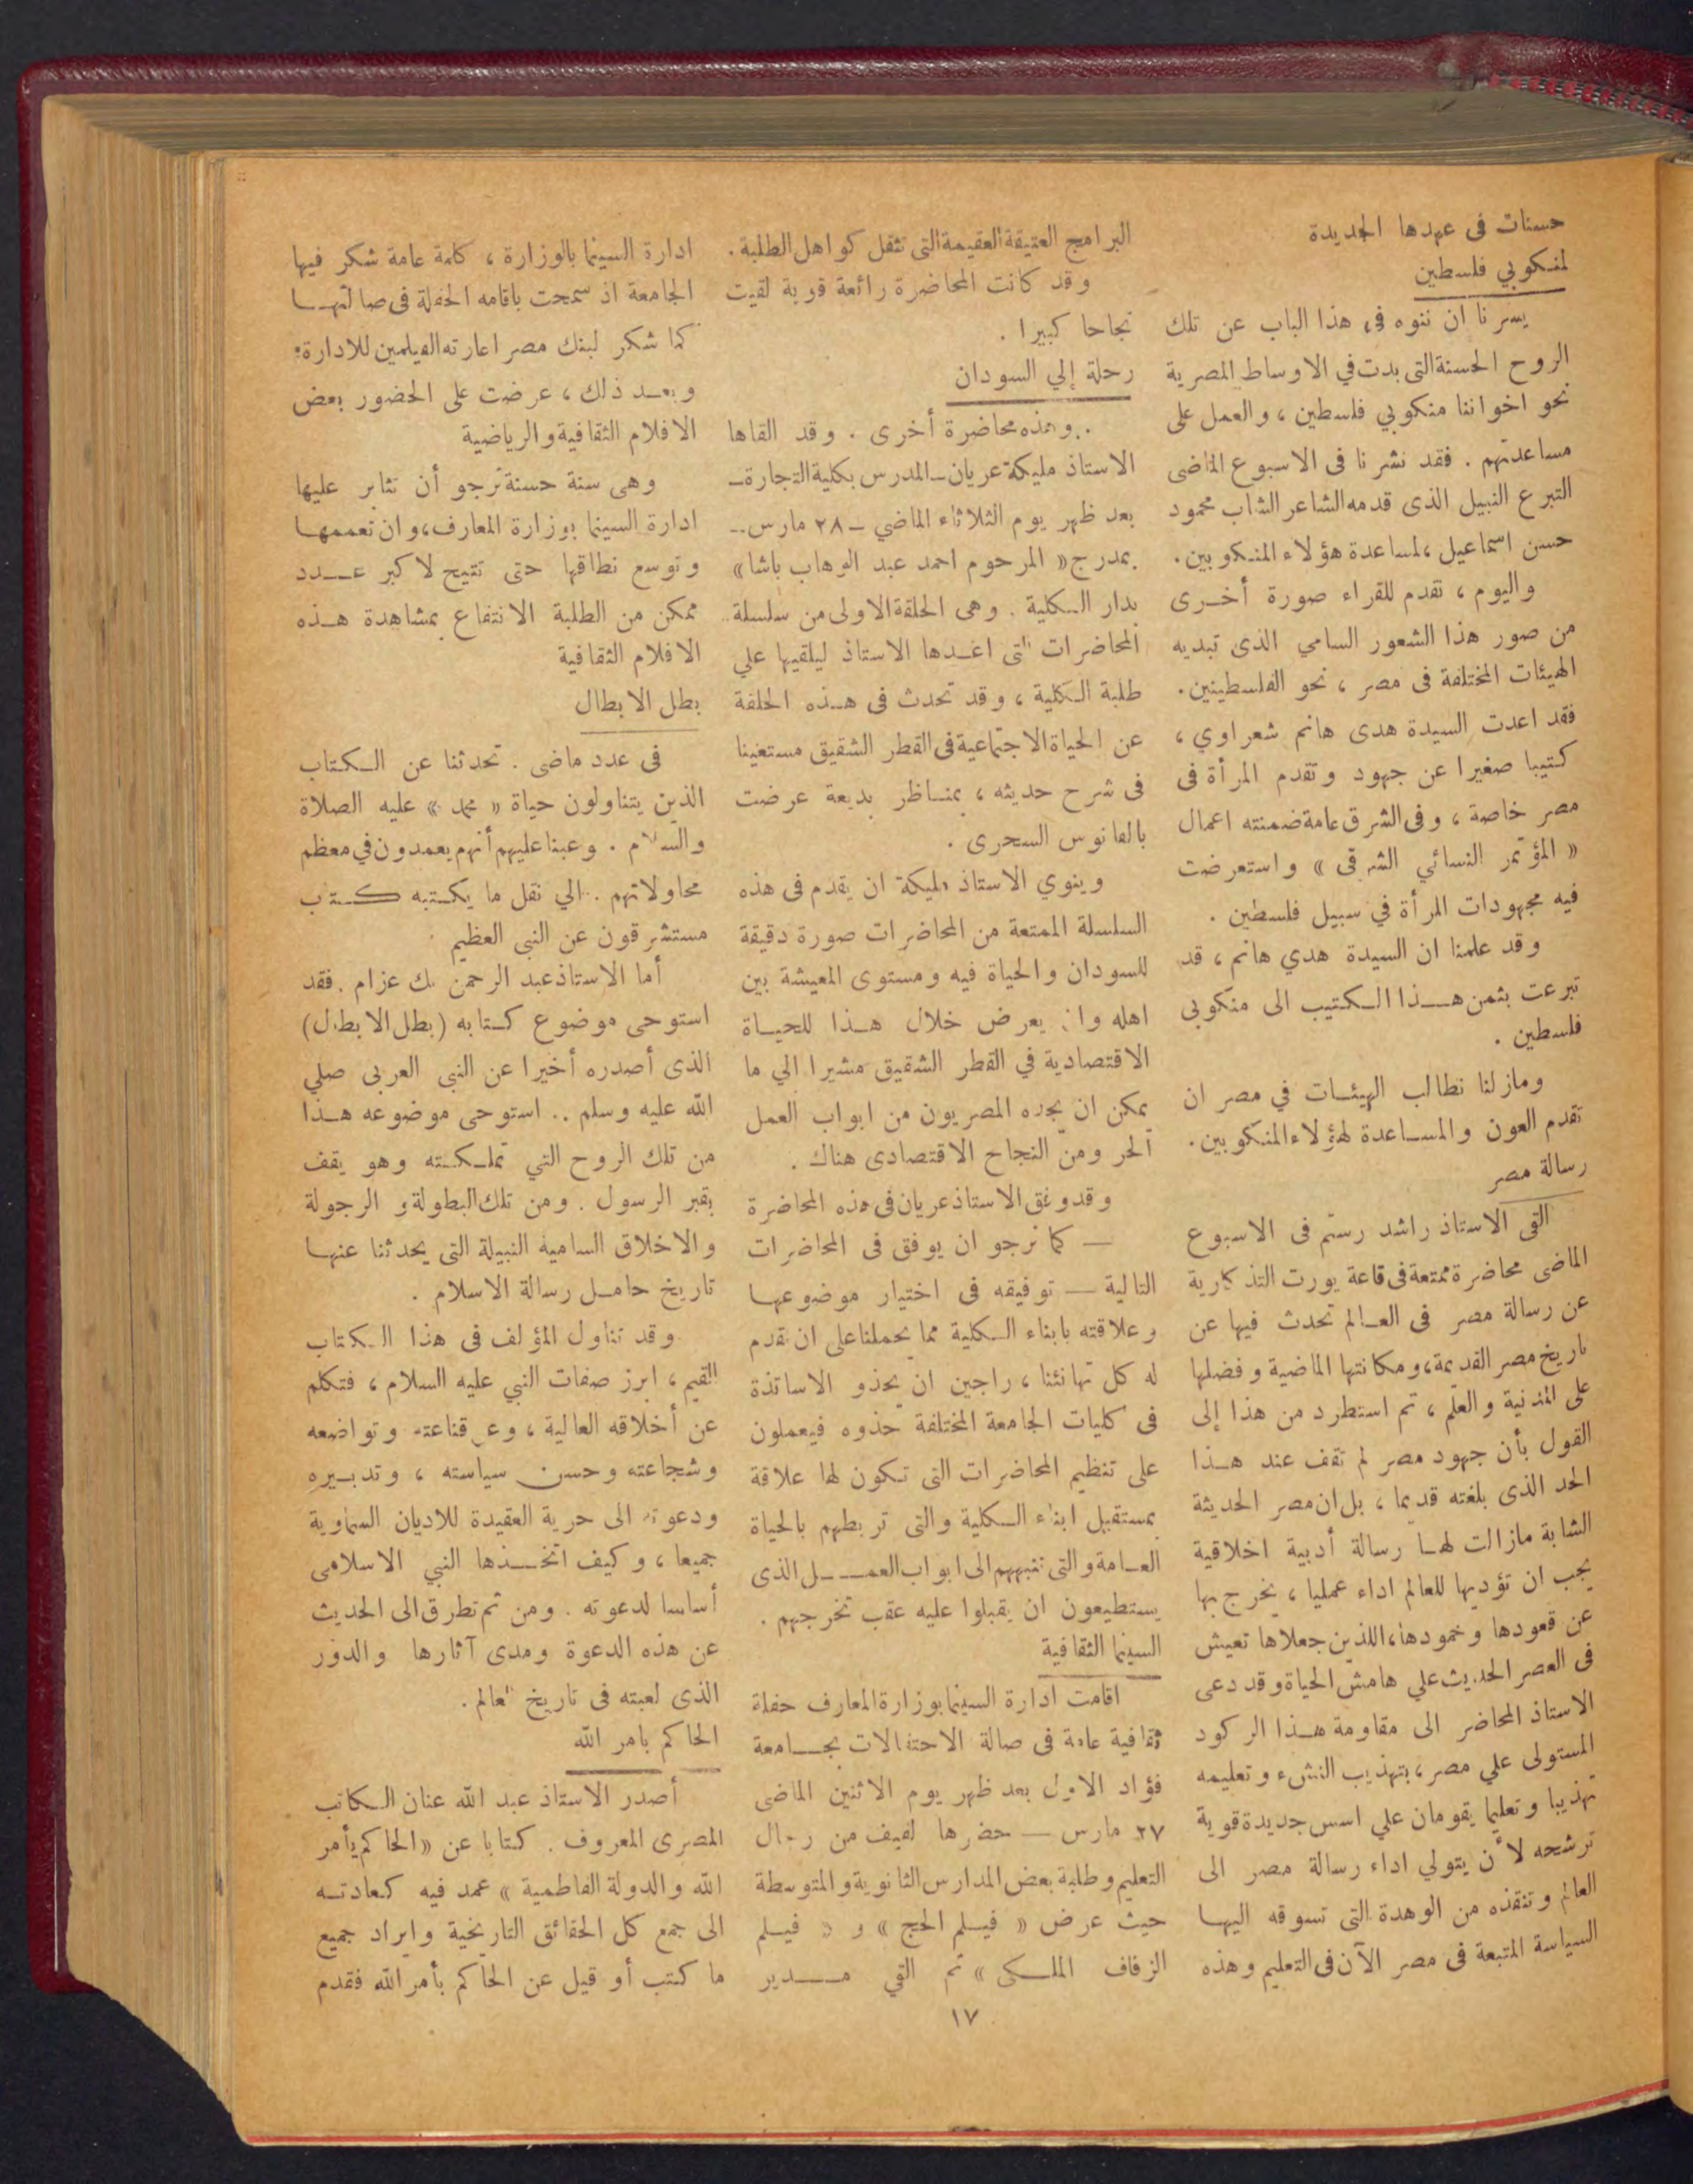 حسنات فى عهدها الجديدة
لمنكوبي فلسطين
يسرنا ان ننوه فى هذا الباب عن تلك
الروح الحسنة التى بدت في الاوساط المصرية
نحو اخواننا منكوبي فلسطين ، والعمل على
مساعدتهم . فقد نشرنا فى الاسبوع الماضى
التبرع النبيل الذى قدمه الشاعر الشاب محمود
حسن اسماعيل ، لمساعدة هؤلاء المنكوبين .
واليوم ، نقدم للقراء صورة أخرى
من صور هذا الشعور السامي الذى تبديه
الهيئات المختلفة فى مصر ، نحو الفلسطينين .
فقد اعدت السيدة هدى هانم شعراوي ،
كتيبا صغيرا عن جهود وتقدم المرأة فى
مصر خاصة ، وفى الشرق عامة ضمنته اعمال
« المؤتمر النسائي الشرقى » واستعرضت
فيه مجهودات المرأة في سبيل فلسطين .
وقد علمنا ان السيدة هدي هانم ، قد
تبرعت بثمن هذا الكتيب الى منكوبى
فلسطين .
ومازلنا نطالب الهيئات في مصر ان
تقدم العون والمساعدة لهؤلاء المنكوبين .
رسالة مصر
القى الاستاذ راشد رستم فى الاسبوع
الماضى محاضرة ممتعة فى قاعة يورت التذكارية
عن رسالة مصر فى العالم تحدث فيها عن
تاريخ مصر القديمة ، ومكانتها الماضية وفضلها
على المدنية والعلم ، ثم استطرد من هذا إلى
القول بأن جهود مصر لم تقف عند هذا
الحد الذى بلغته قديما ، بل ان مصر الحديثة
الشابة مازالت لها رسالة أدبية اخلاقية
يجب ان تؤديها للعالم اداء عمليا ، يخرج بها
عن قعودها وخمودها ، اللذين جعلاها تعيش
فى العصر الحديث علي هامش الحياة وقد دعى
الاستاذ المحاضر الى مقاومة هذا الركود
المستولى علي مصر ، بتهذيب النشء وتعليمه
تهذيبا وتعليما يقومان علي اسس جديدة قوية
ترشحه لأن يتولي اداء رسالة مصر الى
العالم وتنقذه من الوهدة التى تسوقه اليها
السياسة المتبعة فى مصر الآن فى التعليم وهذه
البرامج العتيقة العقيمة التى تثقل كواهل الطلبة .
وقد كانت المحاضرة رائعة قوية لقيت
نجاحا كبيرا .
رحلة إلي السودان
.. وهذه محاضرة أخرى . وقد القاها
الاستاذ مليكة عريان ــ المدرس بكلية التجارة ــ
بعد ظهر يوم الثلاثاء الماضي ــ ٢٨ مارس ــ
بمدرج « المرحوم احمد عبد الوهاب باشا »
بدار الكلية . وهى الحلقة الاولى من سلسلة
المحاضرات التى اعدها الاستاذ ليلقيها علي
طلبة الكلية ، وقد تحدث فى هذه الحلقة
عن الحياة الاجتماعية فى القطر الشقيق مستعينا
فى شرح حديثه ، بمناظر بديعة عرضت
بالفانوس السحرى .
وينوي الاستاذ مليكة ان يقدم فى هذه
السلسلة الممتعة من المحاضرات صورة دقيقة
للسودان والحياة فيه ومستوى المعيشة بين
اهله وان يعرض خلال هذا للحياة
الاقتصادية في القطر الشقيق مشيرا الي ما
يمكن ان يجده المصريون من ابواب العمل
الحر ومن النجاح الاقتصادى هناك .
وقد وفق الاستاذ عريان فى هذه المحاضرة
— كما نرجو ان يوفق فى المحاضرات
التالية — توفيقه فى اختيار موضوعها
وعلاقته بابناء الكلية مما يحملنا على ان نقدم
له كل تهانئنا ، راجين ان يحذو الاساتذة
فى كليات الجامعة المختلفة حذوه فيعملون
على تنظيم المحاضرات التى تكون لها علاقة
بمستقبل ابناء الكلية والتى تربطهم بالحياة
العامة والتى تنبههم الى ابواب العمل الذى
يستطيعون ان يقبلوا عليه عقب تخرجهم .
السينما الثقافية
اقامت ادارة السينما بوزارة المعارف حفلة
ثقافية عامة فى صالة الاحتفالات بجامعة
فؤاد الاول بعد ظهر يوم الاثنين الماضى
٢٧ مارس — حضرها لفيف من رجال
التعليم وطلبة بعض المدارس الثانوية والمتوسطة
حيث عرض « فيلم الحج » و « فيلم
الزفاف الملكى » ثم القي مدير
ادارة السينما بالوزارة ، كلمة عامة شكر فيها
الجامعة اذ سمحت باقامه الحفلة فى صالتها
كما شكر لبنك مصر اعارته الفيلمين للادارة .
وبعد ذلك ، عرضت على الحضور بعض
الافلام الثقافية والرياضية
وهى سنة حسنة نرجو أن تثابر عليها
ادارة السينما بوزارة المعارف ، وان تعممها
وتوسع نطاقها حتى تتيح لاكبر عدد
ممكن من الطلبة الانتفاع بمشاهدة هذه
الافلام الثقافية
بطل الابطال
فى عدد ماضى . تحدثنا عن الكتاب
الذين يتناولون حياة « محمد » عليه الصلاة
والسلام . وعبنا عليهم أنهم يعمدون في معظم
محاولاتهم . الي نقل ما يكتبه كتاب
مستشرقون عن النبى العظيم
أما الاستاذ عبد الرحمن بك عزام . فقد
استوحى موضوع كتابه ( بطل الابطال )
الذى أصدره أخيرا عن النبى العربى صلي
الله عليه وسلم .. استوحى موضوعه هذا
من تلك الروح التي تملكته وهو يقف
بقبر الرسول . ومن تلك البطولة و الرجولة
والاخلاق السامية النبيلة التى يحدثنا عنها
تاريخ حامل رسالة الاسلام .
وقد تناول المؤلف فى هذا الكتاب
القيم ، ابرز صفات النبي عليه السلام ، فتكلم
عن أخلاقه العالية ، وعن قناعته وتواضعه
وشجاعته وحسن سياسته ، وتدبيره
ودعوته الى حرية العقيدة للاديان السماوية
جميعا ، وكيف اتخذها النبي الاسلامى
أساسا لدعوته . ومن ثم تطرق الى الحديث
عن هذه الدعوة ومدى آثارها والدور
الذى لعبته فى تاريخ العالم .
الحاكم بامر الله
أصدر الاستاذ عبد الله عنان الكاتب
المصرى المعروف . كتابا عن « الحاكم بأمر
الله والدولة الفاطمية » عمد فيه كعادته
الى جمع كل الحقائق التاريخية وايراد جميع
ما كتب أو قيل عن الحاكم بأمر الله فقدم
١٧